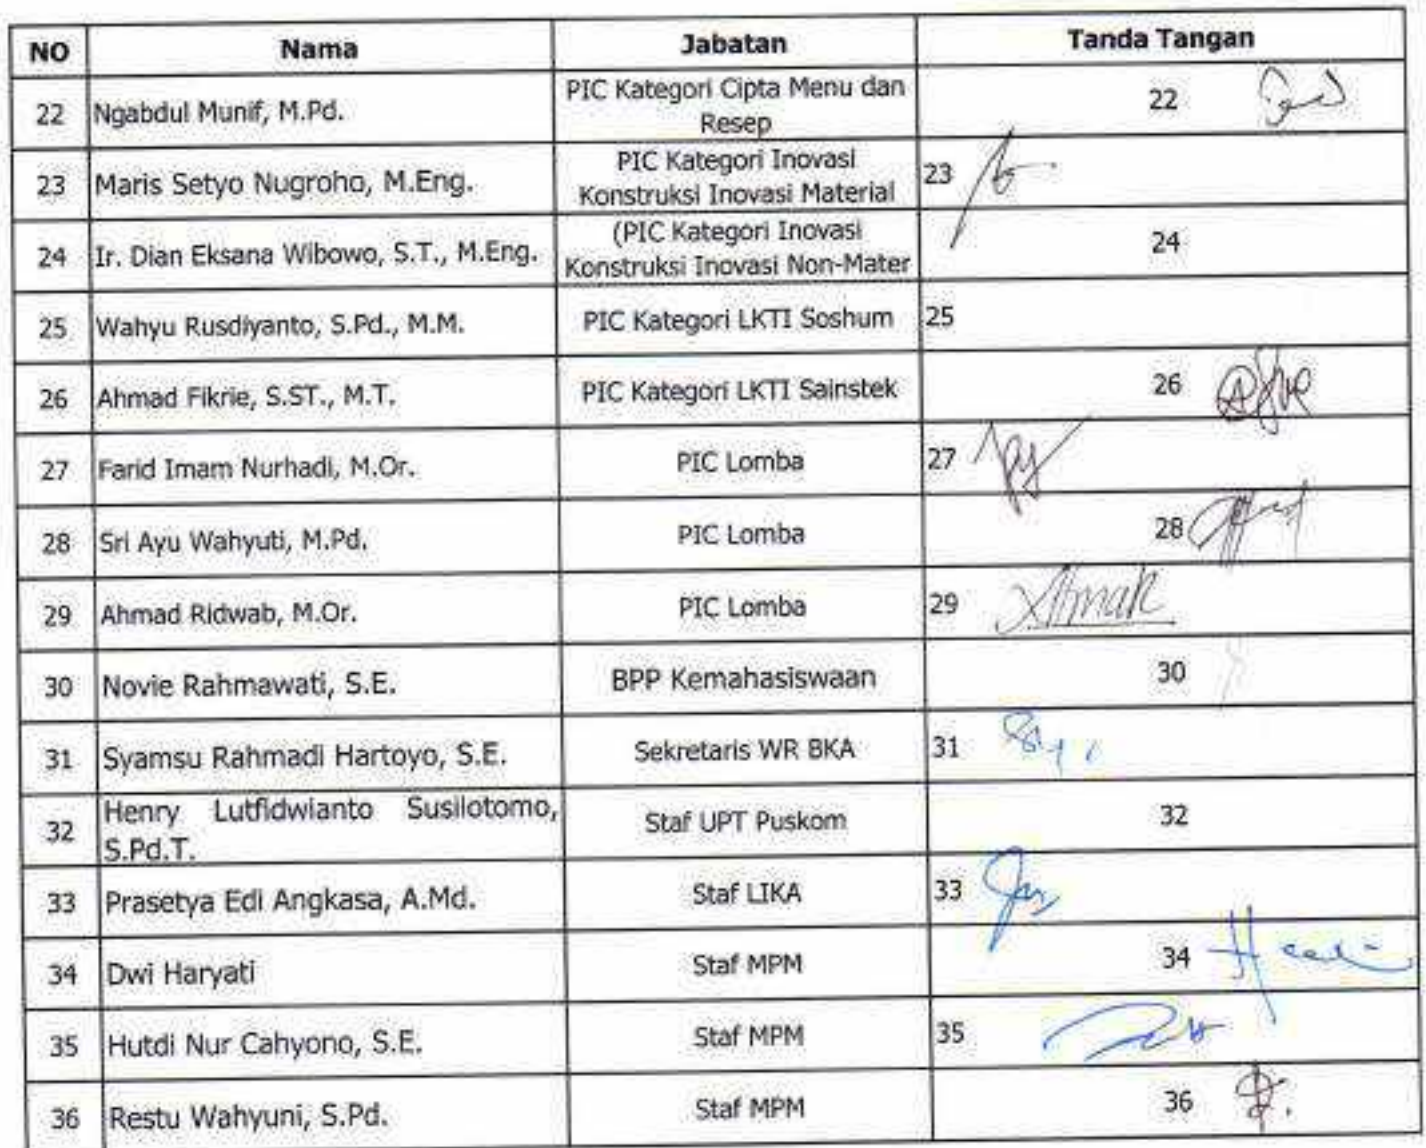 NO Nama Jabatan Tanda Tangan
22 Ngabdul Munif, M.Pd. PIC Kategori Cipta Menu dan 22
Resep
23 Maris Setyo Nugroho, M.Eng. PIC Kategori Inovasi 23
Konstruksi Inovasi Material
24 Ir. Dian Eksana Wibowo, S.T., M.Eng. (PIC Kategori Inovasi 24
Konstruksi Inovasi Non-Mater
25 Wahyu Rusdiyanto, S.Pd., M.M. PIC Kategori LKTI Soshum 25
26 Ahmad Fikrie, S.ST., M.T. PIC Kategori LKTI Sainstek 26
27 Farid Imam Nurhadi, M.Or. PIC Lomba 27
28 Sri Ayu Wahyuti, M.Pd. PIC Lomba 28
29 Ahmad Ridwab, M.Or. PIC Lomba 29
30 Novie Rahmawati, S.E. BPP Kemahasiswaan 30
31 Syamsu Rahmadi Hartoyo, S.E. Sekretaris WR BKA 31
32 Henry Lutfidwianto Susilotomo, Staf UPT Puskom 32
S.Pd.T.
33 Prasetya Edi Angkasa, A.Md. Staf LIKA 33
34 Dwi Haryati Staf MPM 34
35 Hutdi Nur Cahyono, S.E. Staf MPM 35
36 Restu Wahyuni, S.Pd. Staf MPM 36